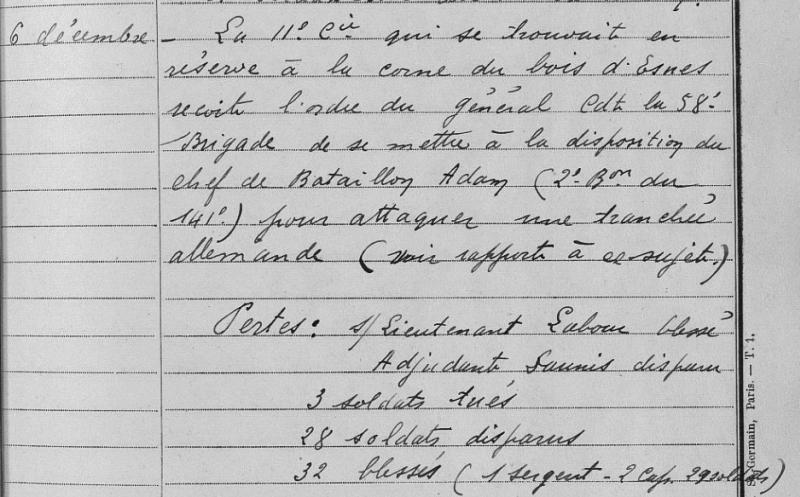 6 décembre - La 11e Cie qui se trouvait en
réserve à la corne du bois d'Esnes
recoit l'ordre du général Cdt la 58e
Brigade de se mettre à la disposition du
chef de Bataillon Adam (2e Bon du
141e) pour attaquer une tranchée
allemande (voir rapport à ce sujet.)
Pertes: s/Lieutenant Labour blessé
Adjudant Saunis disparu
3 soldats tués
28 soldats disparus
32 blessés (1 sergent - 2 Cap. 29 soldats)
Germain, Paris. — T. 1.